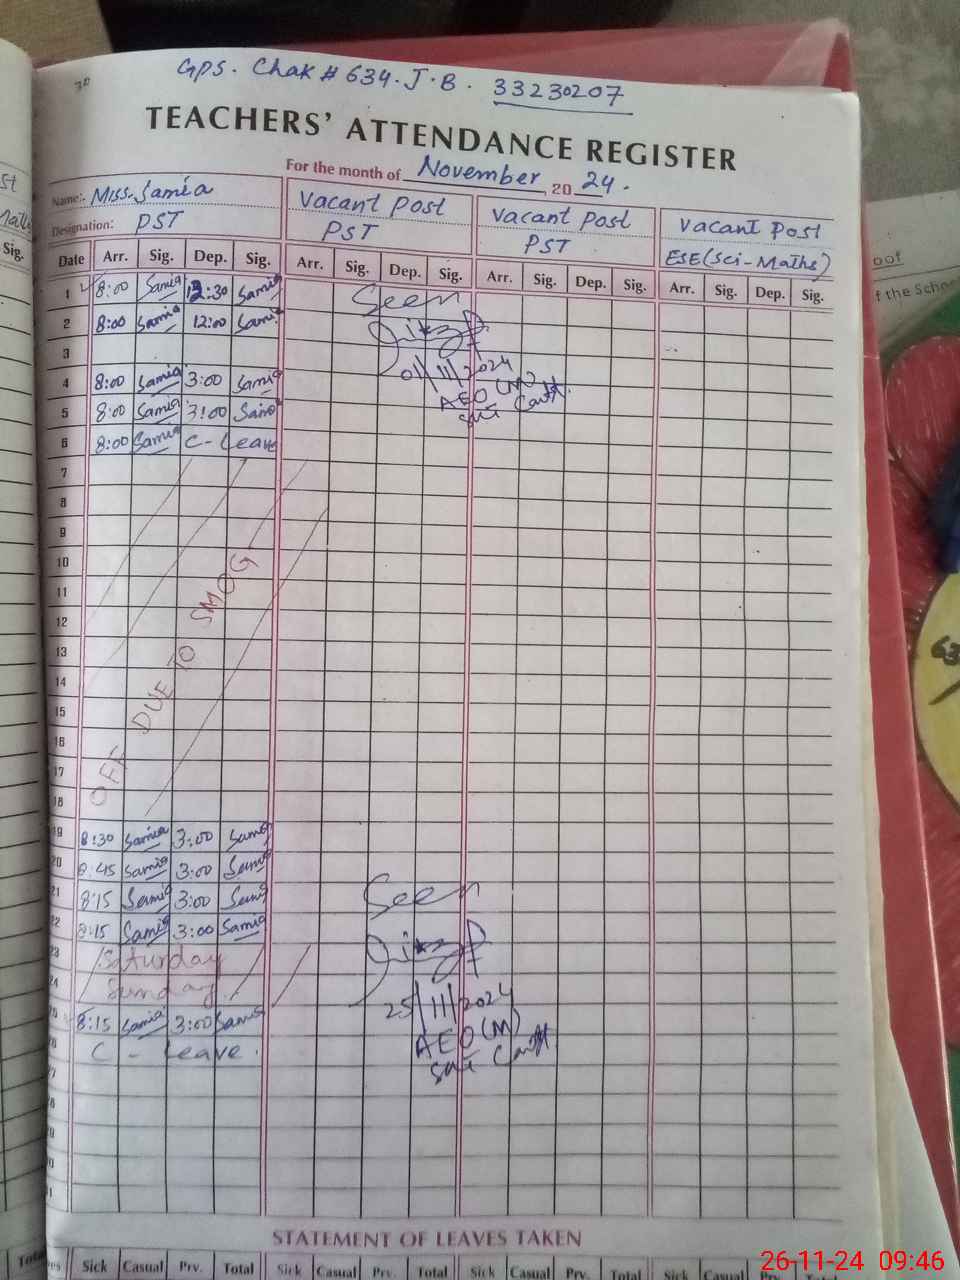 GPS. Chak # 634. J. B. 33230207
TEACHERS' ATTENDANCE REGISTER
For the month of November, 20 24.
Name:- Miss. Samia Vacant Post Vacant Post Vacant Post
Designation: PST PST PST ESE (Sci-Maths)
Date Arr. Sig. Dep. Sig. Arr. Sig. Dep. Sig. Arr. Sig. Dep. Sig. Arr. Sig. Dep. Sig.
1 8:00 Samia 12:30 Samia Seen
2 8:00 Samia 12:00 Samia
3
01/11/2024
4 8:00 Samia 3:00 Samia AEO (M)
5 8:00 Samia 3:00 Samia
6 8:00 Samia C - Leave
7
8
9
10
11
12
13
14
15
16
17
18
OFF DUE TO SMOG
19 8:30 Samia 3:00 Samia
20 8:45 Samia 3:00 Samia
21 8:15 Samia 3:00 Samia Seen
22 8:15 Samia 3:00 Samia
23 Saturday
24 Sunday 25/11/2024
8:15 Samia 3:00 Samia AEO (M)
C - Leave.
STATEMENT OF LEAVES TAKEN
Sick Casual Prv. Total Sick Casual Prv. Total Sick Casual Prv. Total Sick Casual
Sig.
Total
of the School
26-11-24 09:46